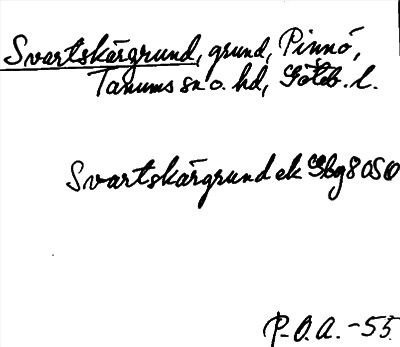 Svartskärgrund, grund, Pinnö,
Tanums sn o. hd, Göteb. l.
Svartskärgrund ek Gbg 8 OSO
P.O.A. -55.